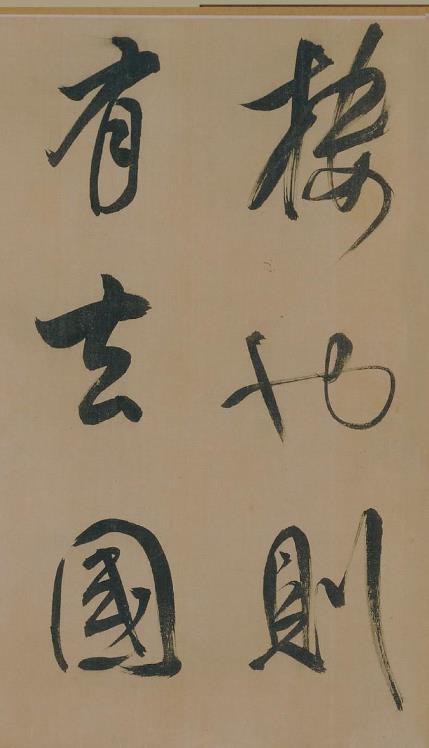 樓也則
有去國